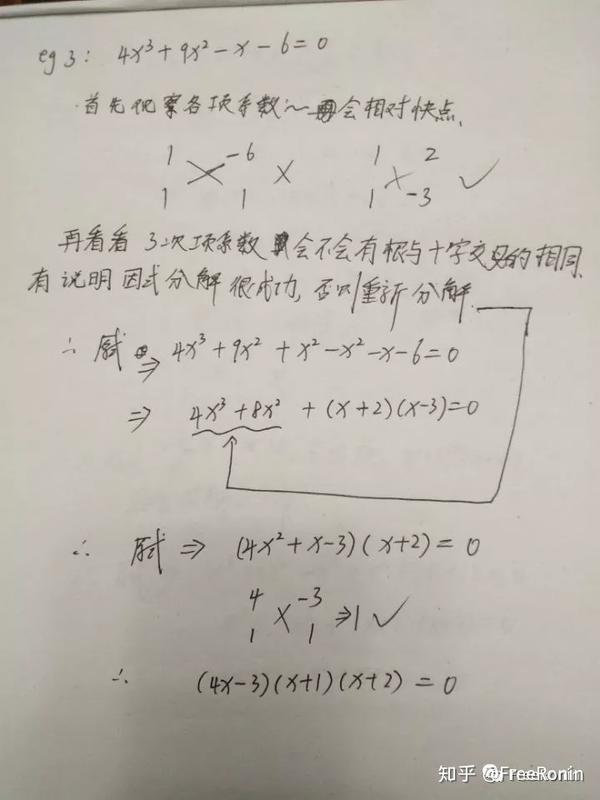 eg 3: 4x³+9x²-x-6=0
首先观察各项系数~会相对快点.
1 -6 1 2
1 1 × 1 -3 ✓
再看看3次项系数会不会有根与十字交叉的相同.
有说明因式分解很成功,否则重新分解.
∴ 原式 ⇒ 4x³+9x²+x²-x²-x-6=0
⇒ 4x³+8x²+(x+2)(x-3)=0
∴ 原式 ⇒ (4x²+x-3)(x+2)=0
4 -3
1 1 ⇒1 ✓
∴ (4x-3)(x+1)(x+2)=0
知乎 @FreeRonin